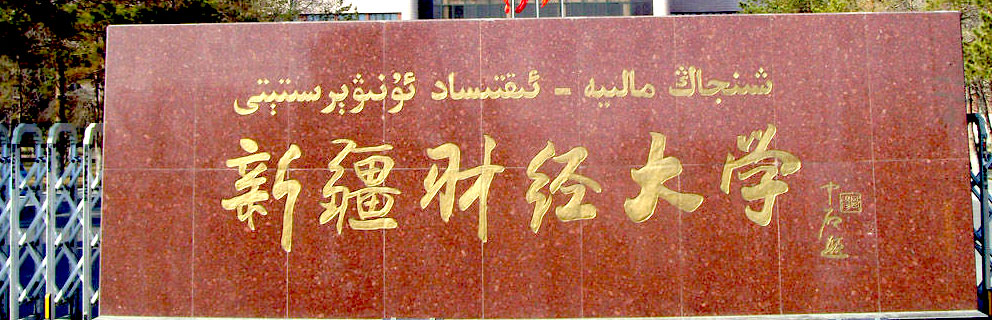 شىنجاڭ مالىيە - ئىقتىساد ئۇنىۋېرسىتېتى
新疆财经大学